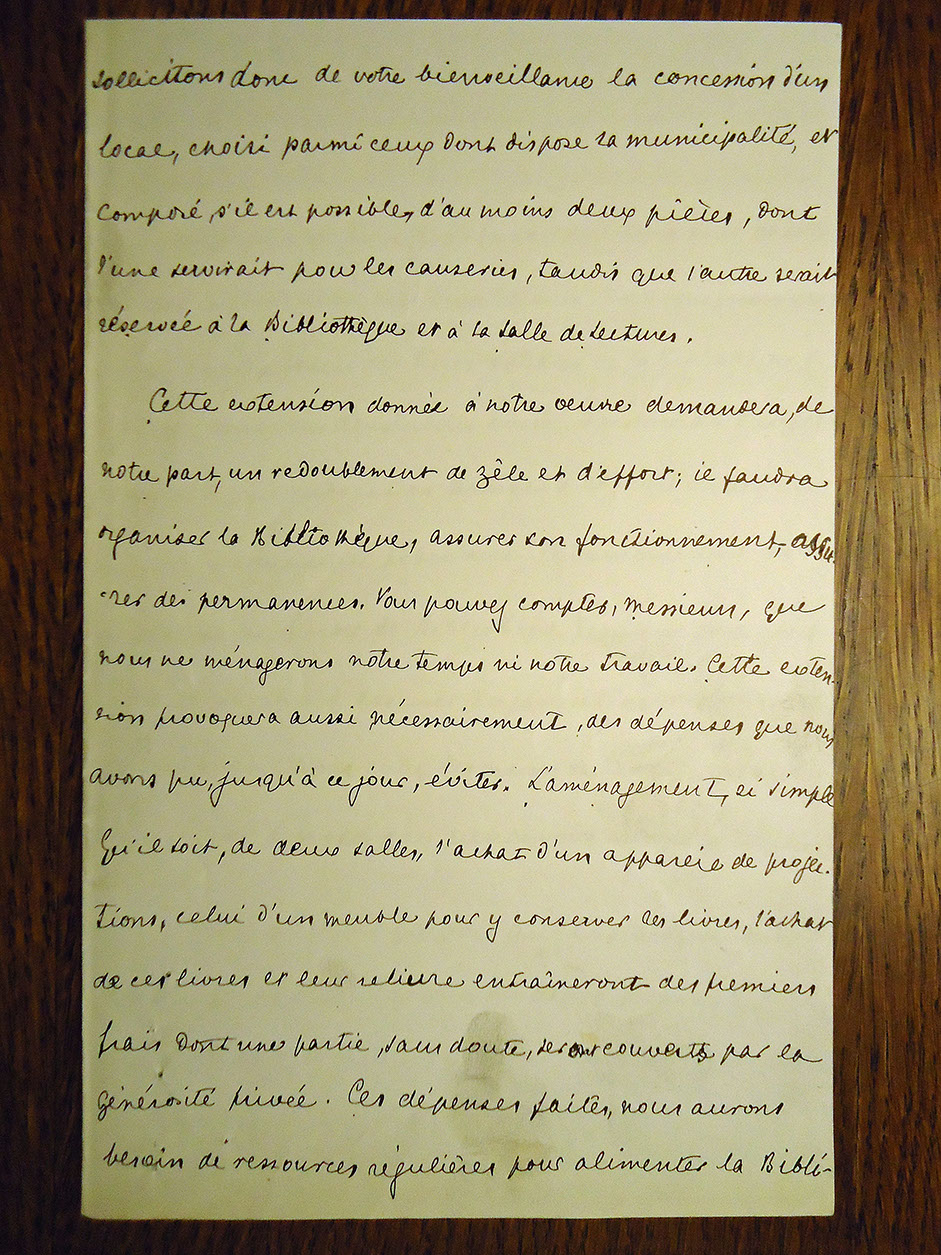 sollicitons donc de votre bienveillance la concession d'un
local, choisi parmi ceux dont dispose la municipalité, et
composé, s'il est possible, d'au moins deux pièces, dont
l'une servirait pour les causeries, tandis que l'autre serait
réservée à la Bibliothèque et à la salle de lectures.
Cette extension donnée à notre oeuvre demandera, de
notre part, un redoublement de zêle et d'effort; il faudra
organiser la Bibliothèque, assurer son fonctionnement, assu-
rer des permanences. Vous pouvez compter, messieurs, que
nous ne ménagerons notre temps ni notre travail. Cette exten-
sion provoquera aussi nécessairement, des dépenses que nous
avons pu, jusqu'à ce jour, éviter. L'aménagement, si simple
Qu'il soit, de deux salles, l'achat d'un appareil de projec-
tions, celui d'un meuble pour y conserver les livres, l'achat
de ces livres et leur reliure entraîneront des premiers
frais dont une partie, sans doute, seront couverts par la
générosité privée. Ces dépenses faites, nous aurons
besoin de ressources régulières pour alimenter la Bibli-